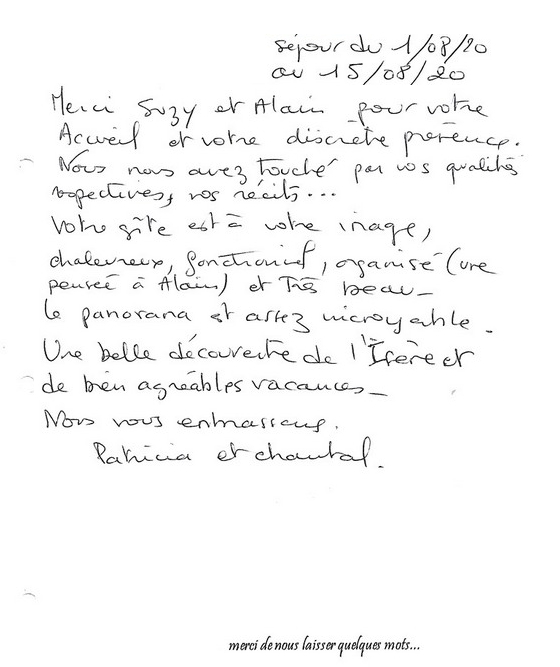 séjour du 1/08/20
au 15/08/20
Merci Suzy et Alain pour votre
Accueil et votre discrète présence.
Nous nous avez touché par vos qualités
respectives, vos récits...
Votre gîte est à votre image,
chaleureux, fonctionnel, organisé (une
pensée à Alain) et Très beau_
le panorama et assez incroyable.
Une belle découverte de l'Isère et
de bien agréables vacances_
Nous vous embrassons.
Patricia et chantal.
merci de nous laisser quelques mots...